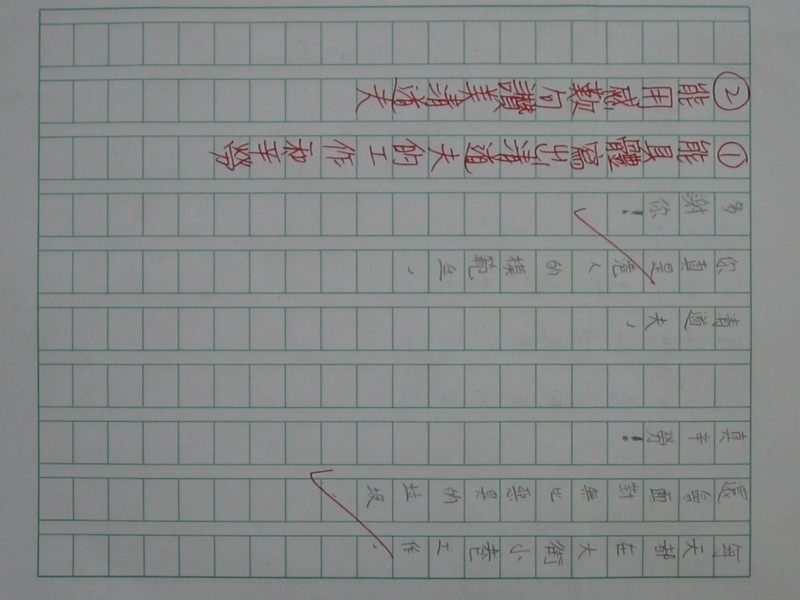 每天都在大街小巷工作，
還會面對無比惡臭的垃圾
真辛勞！
清道夫，
你真是人的模範生，
多謝你！
①能具體寫出清道夫的工作和辛勞
②能用感歎句讚美清道夫